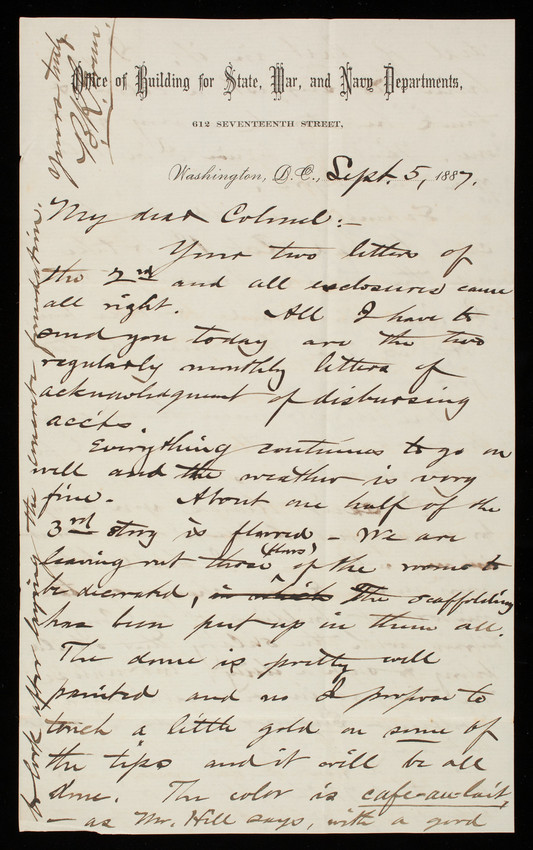 Office of Building for State, War, and Navy Departments,
612 SEVENTEENTH STREET,
Washington, D.C., Sept. 5, 1887.
My dear Colonel:-
Your two letters of
the 2nd and all enclosures came
all right. All I have to
send you today are the two
regularly monthly letters of
acknowledgment of disbursing
accts.
Everything continues to go on
well and the weather is very
fine. About one half of the
3rd story is floored - We are
leaving out those (floors) of the rooms to
be decorated, in which The scaffolding
has been put up in them all.
The dome is pretty well
painted and as I propose to
touch a little gold on some of
the tips and it will be all
done. The color is café-au-lait,
- as Mr. Hill says, with a good
to look after laying the concrete foundation.
Yours truly
B.R. Green.